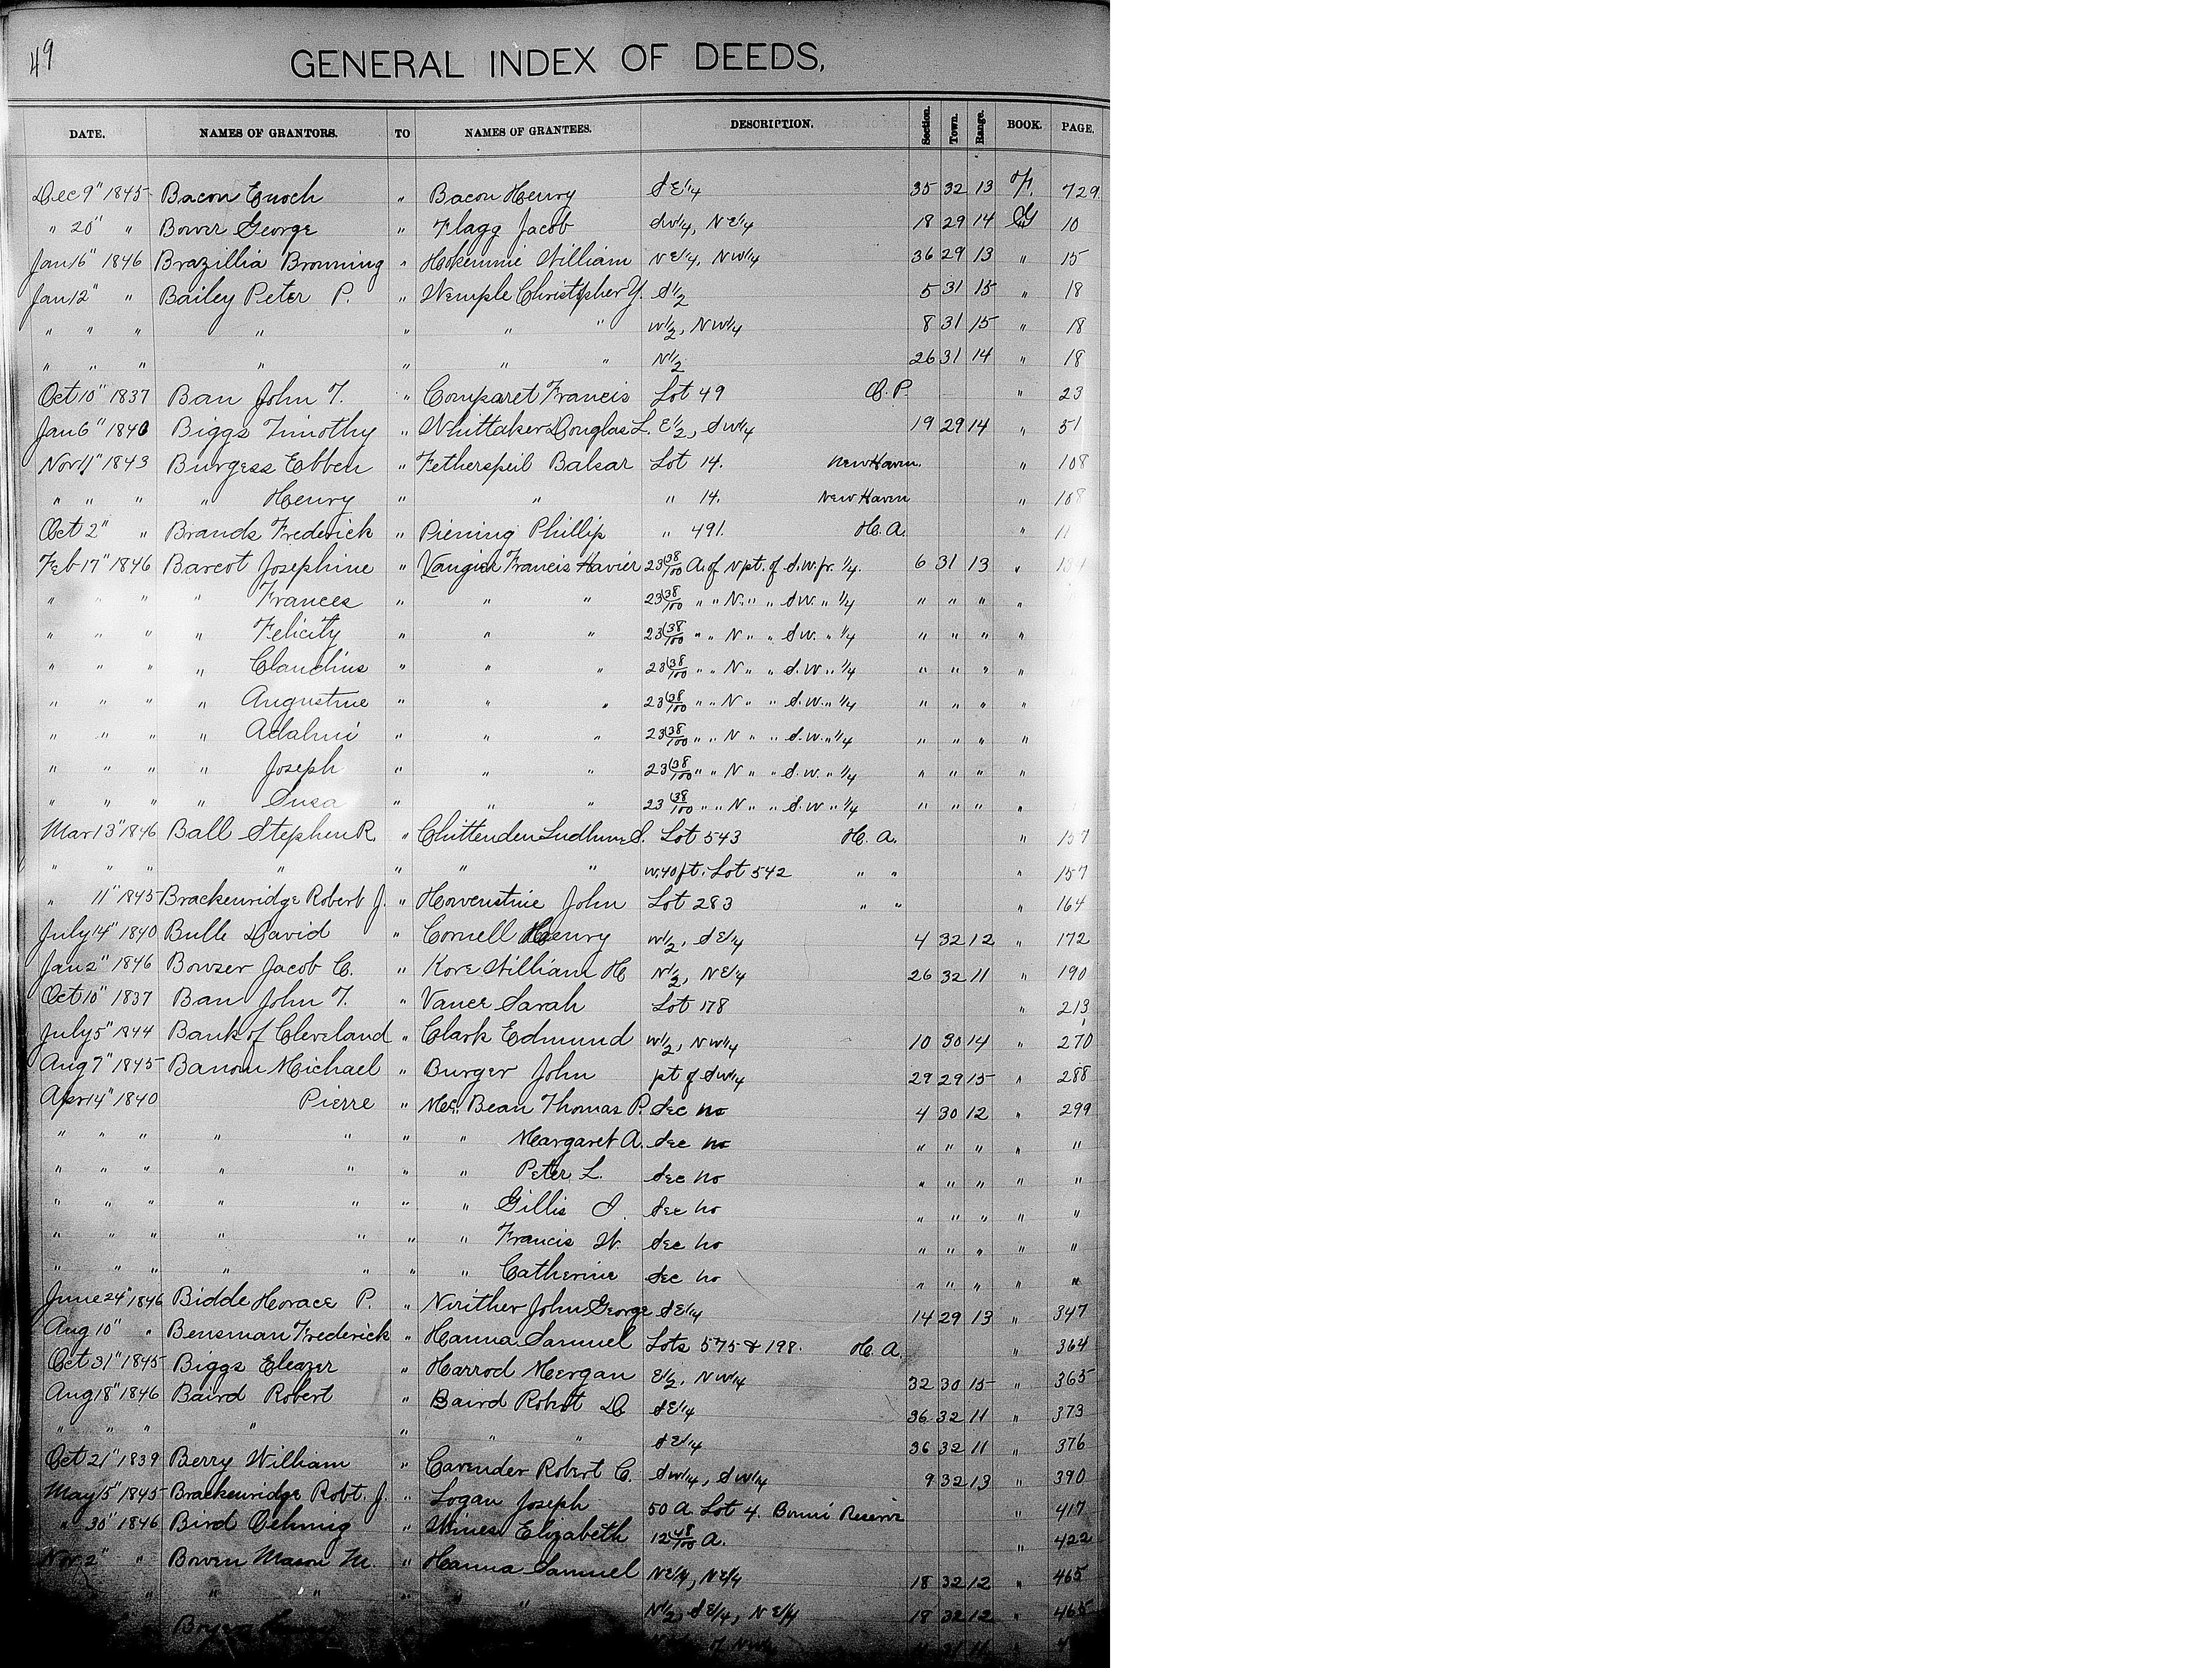 49
GENERAL INDEX OF DEEDS,
DATE. NAMES OF GRANTORS. TO NAMES OF GRANTEES. DESCRIPTION. Section. Town. Range. BOOK. PAGE.
Dec 9" 1845 Bacon Enoch " Bacon Henry SE1/4 35 32 13 F. 729
" 20" " Bower George " Flagg Jacob SW1/4, NE1/4 18 29 14 G 10
Jan 16" 1846 Brazillia Browning " William NE1/4, NW1/4 36 29 13 " 15
Jan 12" " Bailey Peter P. " Wemple Christopher Y. S1/2 5 31 15 " 18
" " " " " " " W1/2, NW1/4 8 31 15 " 18
" " " " " " " N1/2 26 31 14 " 18
Oct 10" 1837 Barr John T. " Comparet Francis Lot 49 C. P. " 23
Jan 6" 1840 Biggs Timothy " Whittaker Douglas L. E1/2, SW1/4 19 29 14 " 51
Nov 11" 1843 Burgess Ebben " Fetherspeil Balsar Lot 14. New Haven. " 108
" " " " Henry " " " 14. New Haven " 108
Oct 2" " Brands Frederick " Piening Phillip " 491. H. A. " 11
Feb 17" 1846 Barcot Josephine " Francis Havier 23 38/100 A. of N pt. of S.W. fr. 1/4. 6 31 13 "
" " " " Frances " " " 23 38/100 " " N. " " S.W. " 1/4 " " " "
" " " " Felicity " " " 23 38/100 " " N " " S.W. " 1/4 " " " "
" " " " Claudius " " " 23 38/100 " " N " " S.W. " 1/4 " " " "
" " " " Augustine " " " 23 38/100 " " N " " S.W. " 1/4 " " " "
" " " " " " " 23 38/100 " " N " " S.W. " 1/4 " " " "
" " " " Joseph " " " 23 38/100 " " N " " S.W. " 1/4 " " " "
" " " " Susa " " " 23 38/100 " " N " " S.W. " 1/4 " " " "
Mar 13" 1846 Ball Stephen R. " Chittenden S. Lot 543 H. A. " 157
" " " " " " " W. 40 ft. Lot 542 " " " 157
" 11" 1845 Brackenridge Robert J. " Howenstine John Lot 283 " " " 164
July 14" 1840 Bulle David " Cornell Henry W1/2, SE1/4 4 32 12 " 172
Jan 2" 1846 Bowser Jacob C. " Kore William H N1/2, NE1/4 26 32 11 " 190
Oct 10" 1837 Barr John T. " Vance Sarah Lot 178 " 213
July 5" 1844 Bank of Cleveland " Clark Edmund W1/2, NW1/4 10 30 14 " 270
Aug 7" 1845 Michael " Burger John pt of SW1/4 29 29 15 " 288
Apr 14" 1840 Pierre " Mc. Bean Thomas P. Sec no 4 30 12 " 299
" " " " " " " Margaret A. Sec no " " " " "
" " " " " " " Peter L. Sec no " " " " "
" " " " " " " Gillis Sec no " " " " "
" " " " " " " Francis W. Sec no " " " " "
" " " " " " " Catherine Sec no " " " " "
June 24" 1846 Biddle Horace P. " John George SE1/4 14 29 13 " 347
Aug 10" " Bensman Frederick " Hanna Samuel Lots 575 & 198. H. A. " 364
Oct 31" 1845 Biggs Eleazer " Harrod Morgan E1/2, NW1/4 32 30 15 " 365
Aug 18" 1846 Baird Robert " Baird Robert D SE1/4 36 32 11 " 373
" " " " " " " SE1/4 36 32 11 " 376
Oct 21" 1839 Berry William " Cavender Robert C. SW1/4, SW1/4 9 32 13 " 390
May 15" 1845 Brackenridge Robt. J. " Logan Joseph 50 A. Lot 4. Reserve " 417
" 30" 1846 Bird Ochmig " Wines Elizabeth 12 48/100 A. " 422
Nov 2" " Bowen Mason M. " Hanna Samuel NE1/4, NE1/4 18 32 12 " 465
" " " " " " N1/2, SE1/4, NE1/4 18 32 12 " 465